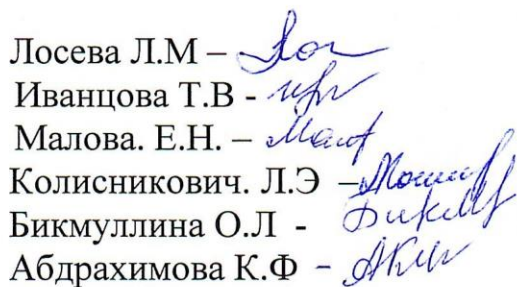 Лосева Л.М –
Иванцова Т.В -
Малова. Е.Н. –
Колисникович. Л.Э –
Бикмуллина О.Л -
Абдрахимова К.Ф -